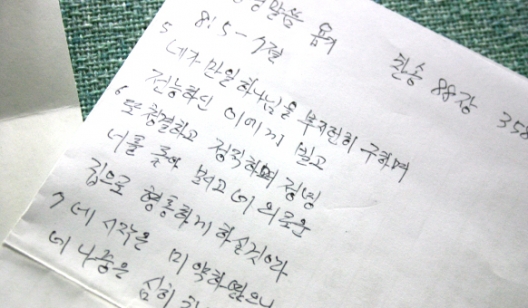 말씀 욥기 찬송 88장 358
8:5-7절
5 네가 만일 하나님을 부지런히 구하며
전능하신 이에게 빌고
6 또 청결하고 정직하며 정녕
너를 돌아 보시고 네 의로운
집으로 형통하게 하실것이라
7 네 시작은 미약하였으나
네 나중은 심히